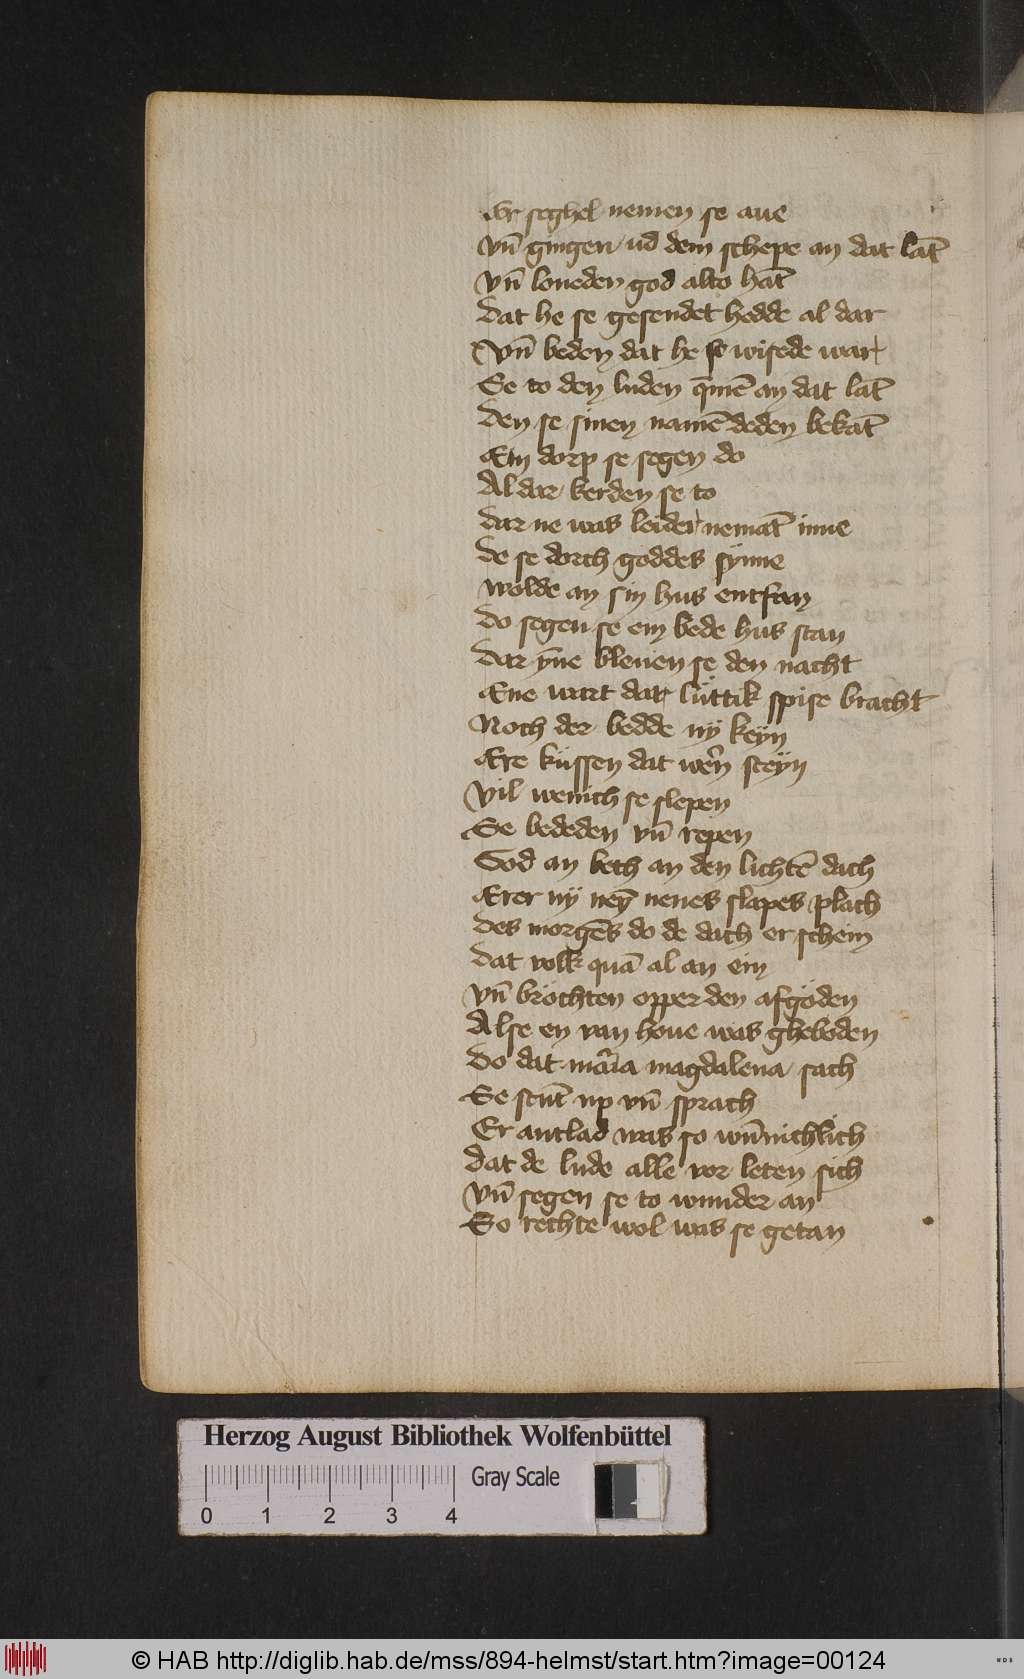 Er seghel nemen se aue
Vn̄ gingen ud dem schepe an dat lāt
Vn̄ loueden god alto hāt
Dat he se gesendet hedde al dar
Vn̄ beden dat he se wisede war
Se to den luden q̄mē an dat lāt
Den se sinen namē deden bekāt
Ein dorp se segen do
Al dar kerden se to
Dar ne was leider nemāt inne
De se dorch goddes sÿnne
Wolde an sin hus entfan
Do segen se ein bede hus stan
Dar ȳne bleuen se den nacht
Ene wart dar lüttik spise bracht
Noch der bedde nÿ keÿn
Ere küssen dat wērn steÿn
Vil wenich se slepen
Se bededen vn̄ repen
God an beth an den lichtē dach
Erer nÿ neȳ nenes slapes plach
Des morgēs do de dach er schein
Dat volk quā al an ein
Vn̄ bröchten opper den afgöden
Alse en van houe was gheboden
Do dat mār̄ia magdalena sach
Se stūt up vn̄ sprach
Er antlad was so wn̄nichlich
Dat de lude alle vor leten sich
Vn̄ segen se to wunder an
So rechte wol was se getan
Herzog August Bibliothek Wolfenbüttel
Gray Scale
0 1 2 3 4
© HAB http://diglib.hab.de/mss/894-helmst/start.htm?image=00124